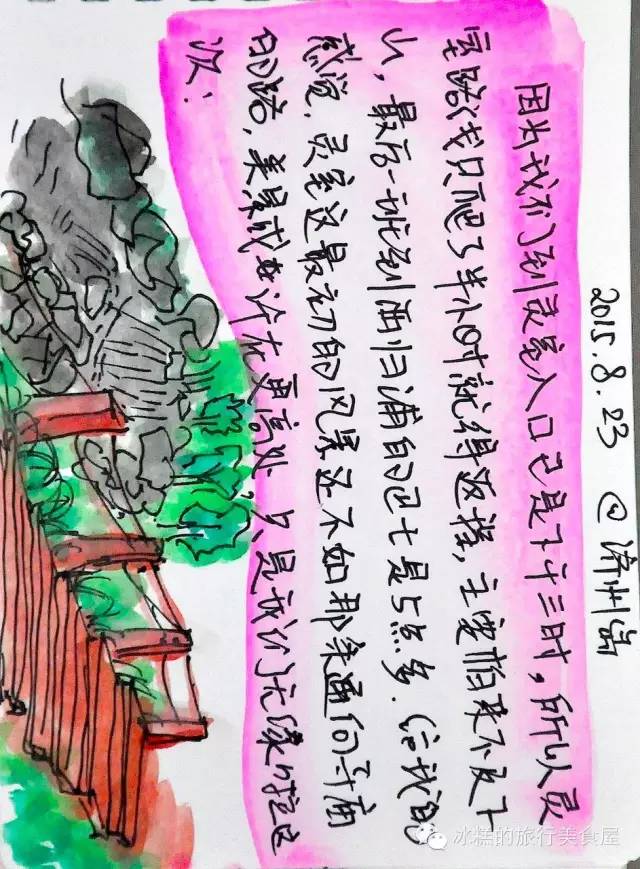 2015.8.23 @济州岛
因为我们到灵室入口已是下午三时，所以灵
室路线只爬了半小时就得返程，主要怕来不及下
山，最后一班到西归浦的巴士是5点多．给我的
感觉，灵室这最初的风景还不如那条通向寺庙
的路，美景或许在更高处 只是我们无缘啦这
次：
冰糕的旅行美食屋